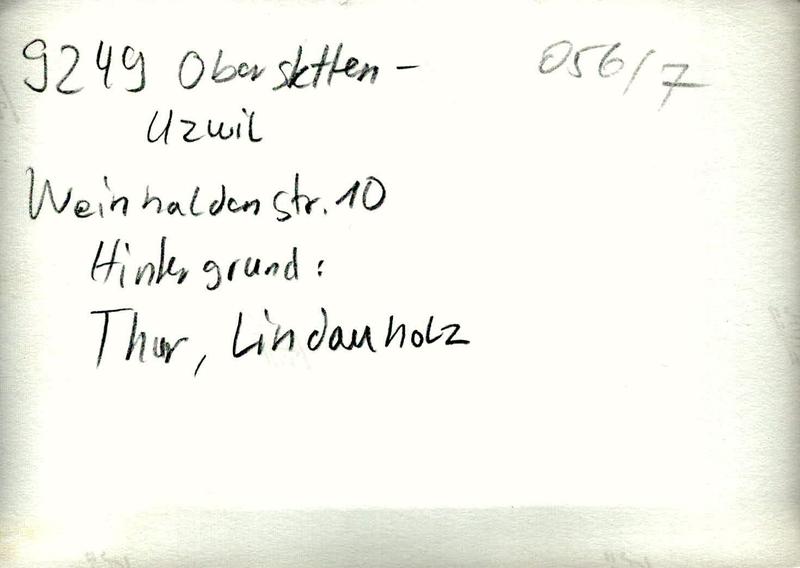 9249 Oberstetten -
056/7
Uzwil
Weinhaldenstr. 10
Hintergrund:
Thur, Lindauholz